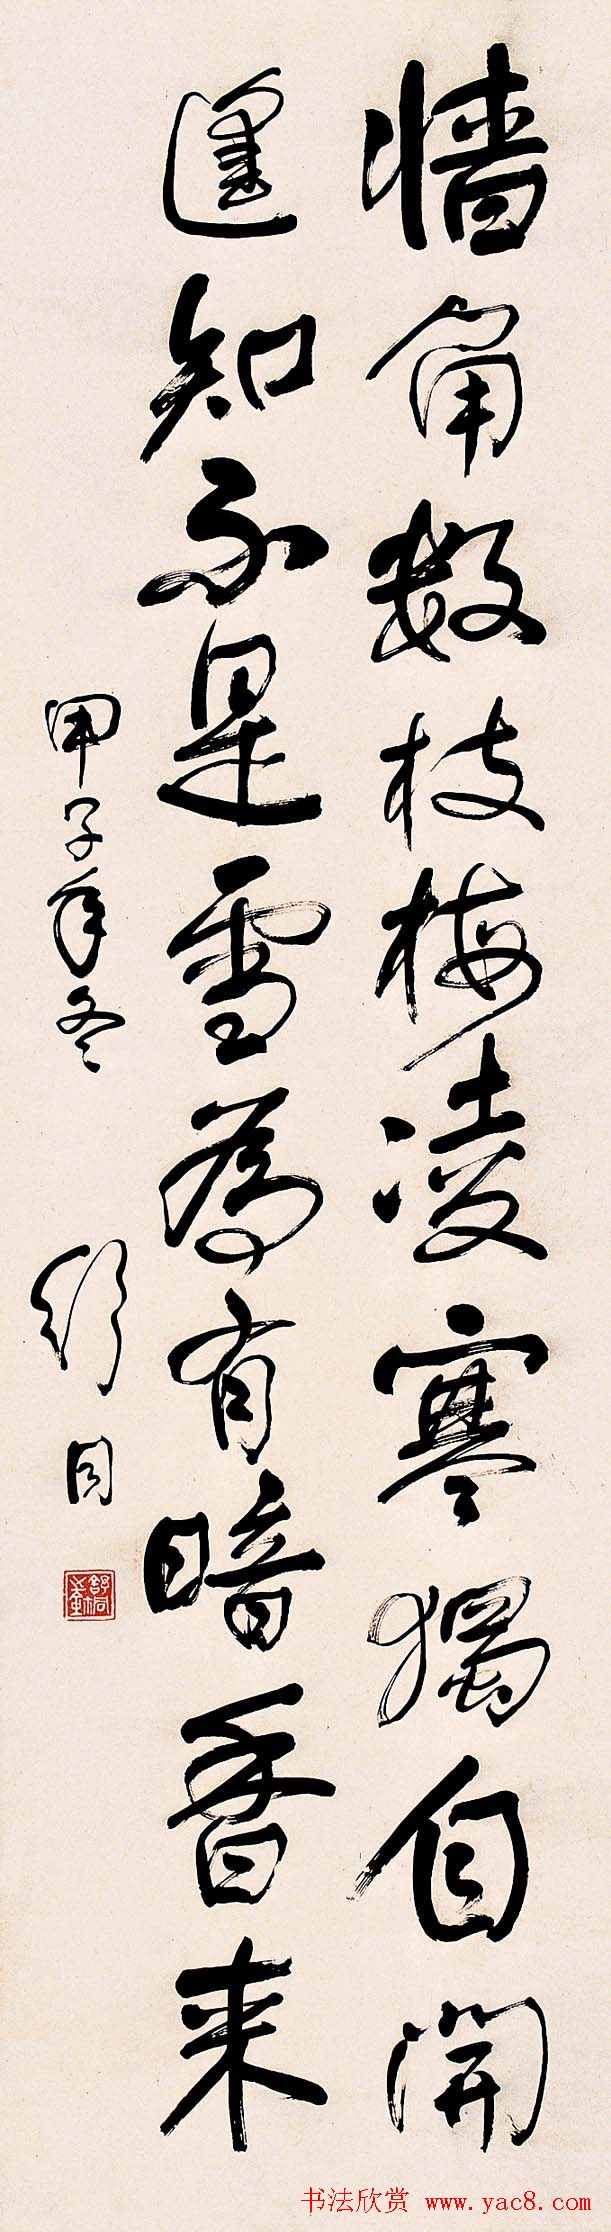 墙角数枝梅凌寒独自開
遥知不是雪為有暗香来
甲子年冬
舒同
舒同
书法欣赏 www.yac8.com